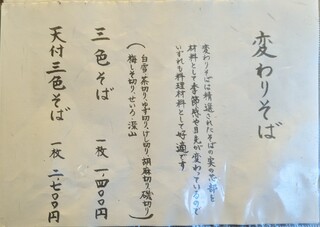 変わりそば
変わりそばは精選されたそばの実の芯部を
材料として季節感や目先が変わっているので
いずれも料理材料として好適です
(白雪 茶切り、ゆず切り、けし切り 胡麻切り 磯切り
梅しそ切り、せいろ 深山)
三色そば 一枚 一、四〇〇円
天付三色そば 一枚 二、七〇〇円